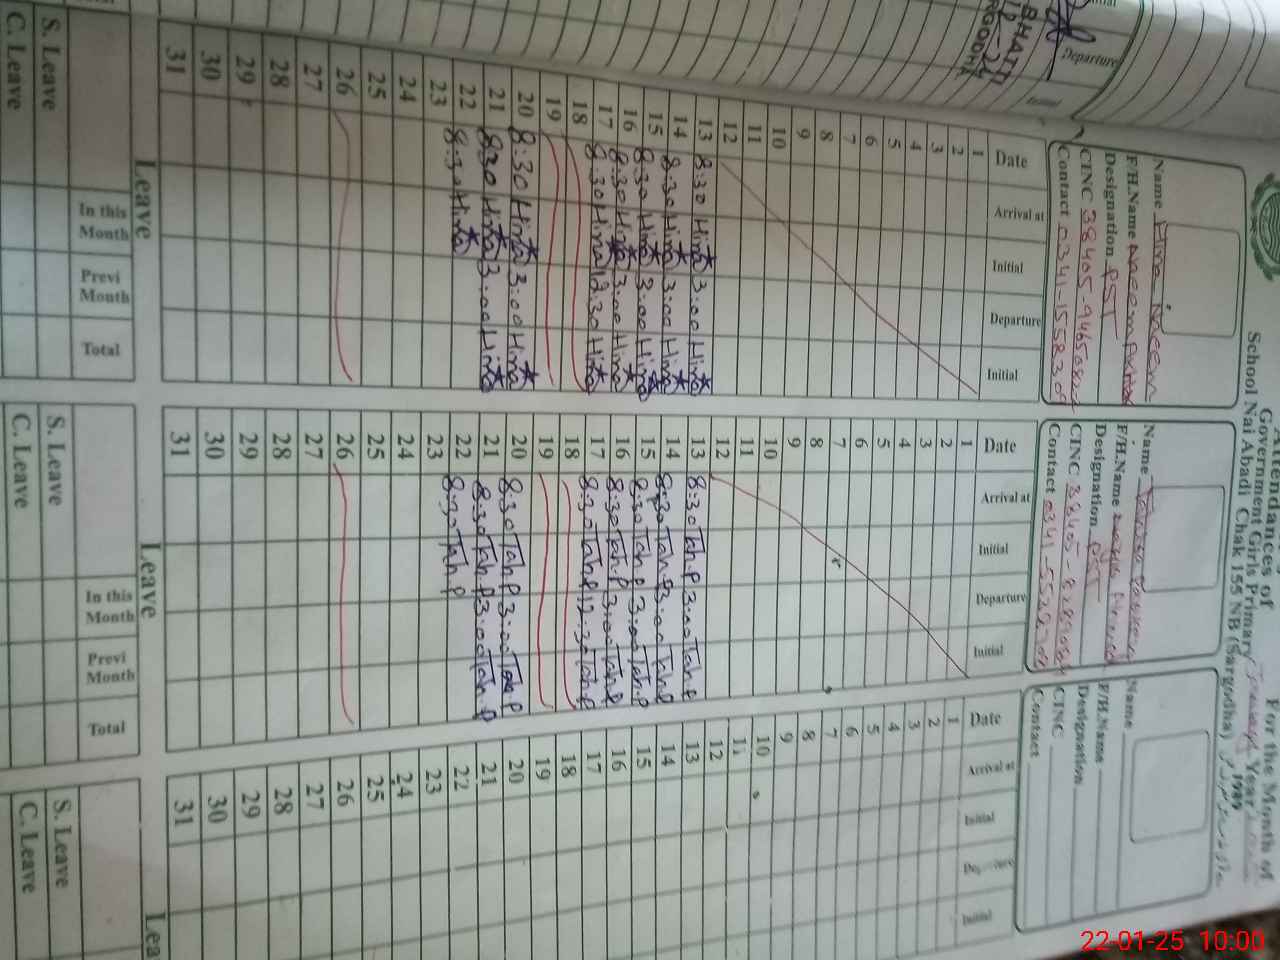 Attendances of
Government Girls Primary
School Nai Abadi Chak 155 NB (Sargodha)
For the Month of
Year
1989
Name Hina Naeem
F/H.Name Naeem
Designation PST
CINC 38405-
Contact 0341-
Date Arrival at Initial Departure Initial
1
2
3
4
5
6
7
8
9
10
11
12
13 8:30 Hina 3:00 Hina
14 8:30 Hina 3:00 Hina
15 8:30 Hina 3:00 Hina
16 8:30 Hina 3:00 Hina
17 8:30 Hina 12:30 Hina
18
19
20 8:30 Hina 3:00 Hina
21 8:30 Hina 3:00 Hina
22 8:30 Hina
23
24
25
26
27
28
29
30
31
Leave
In this Month
Previ Month
Total
S. Leave
C. Leave
Name
F/H.Name
Designation PST
CINC 38405-
Contact 0341-
Date Arrival at Initial Departure Initial
1
2
3
4
5
6
7
8
9
10
11
12
13 8:30 Tah.P 3:00 Tah.P
14 8:30 Tah.P 3:00 Tah.P
15 8:30 Tah.P 3:00 Tah.P
16 8:30 Tah.P 3:00 Tah.P
17 8:30 Tah.P 12:30 Tah.P
18
19
20 8:30 Tah.P 3:00 Tah.P
21 8:30 Tah.P 3:00 Tah.P
22 8:30 Tah.P
23
24
25
26
27
28
29
30
31
Leave
In this Month
Previ Month
Total
S. Leave
C. Leave
Name
F/H.Name
Designation
CINC
Contact
Date Arrival at Initial Departure Initial
1
2
3
4
5
6
7
8
9
10
11
12
13
14
15
16
17
18
19
20
21
22
23
24
25
26
27
28
29
30
31
Lea
S. Leave
C. Leave
Departure
Initial
BHATTI
22-01-25 10:00